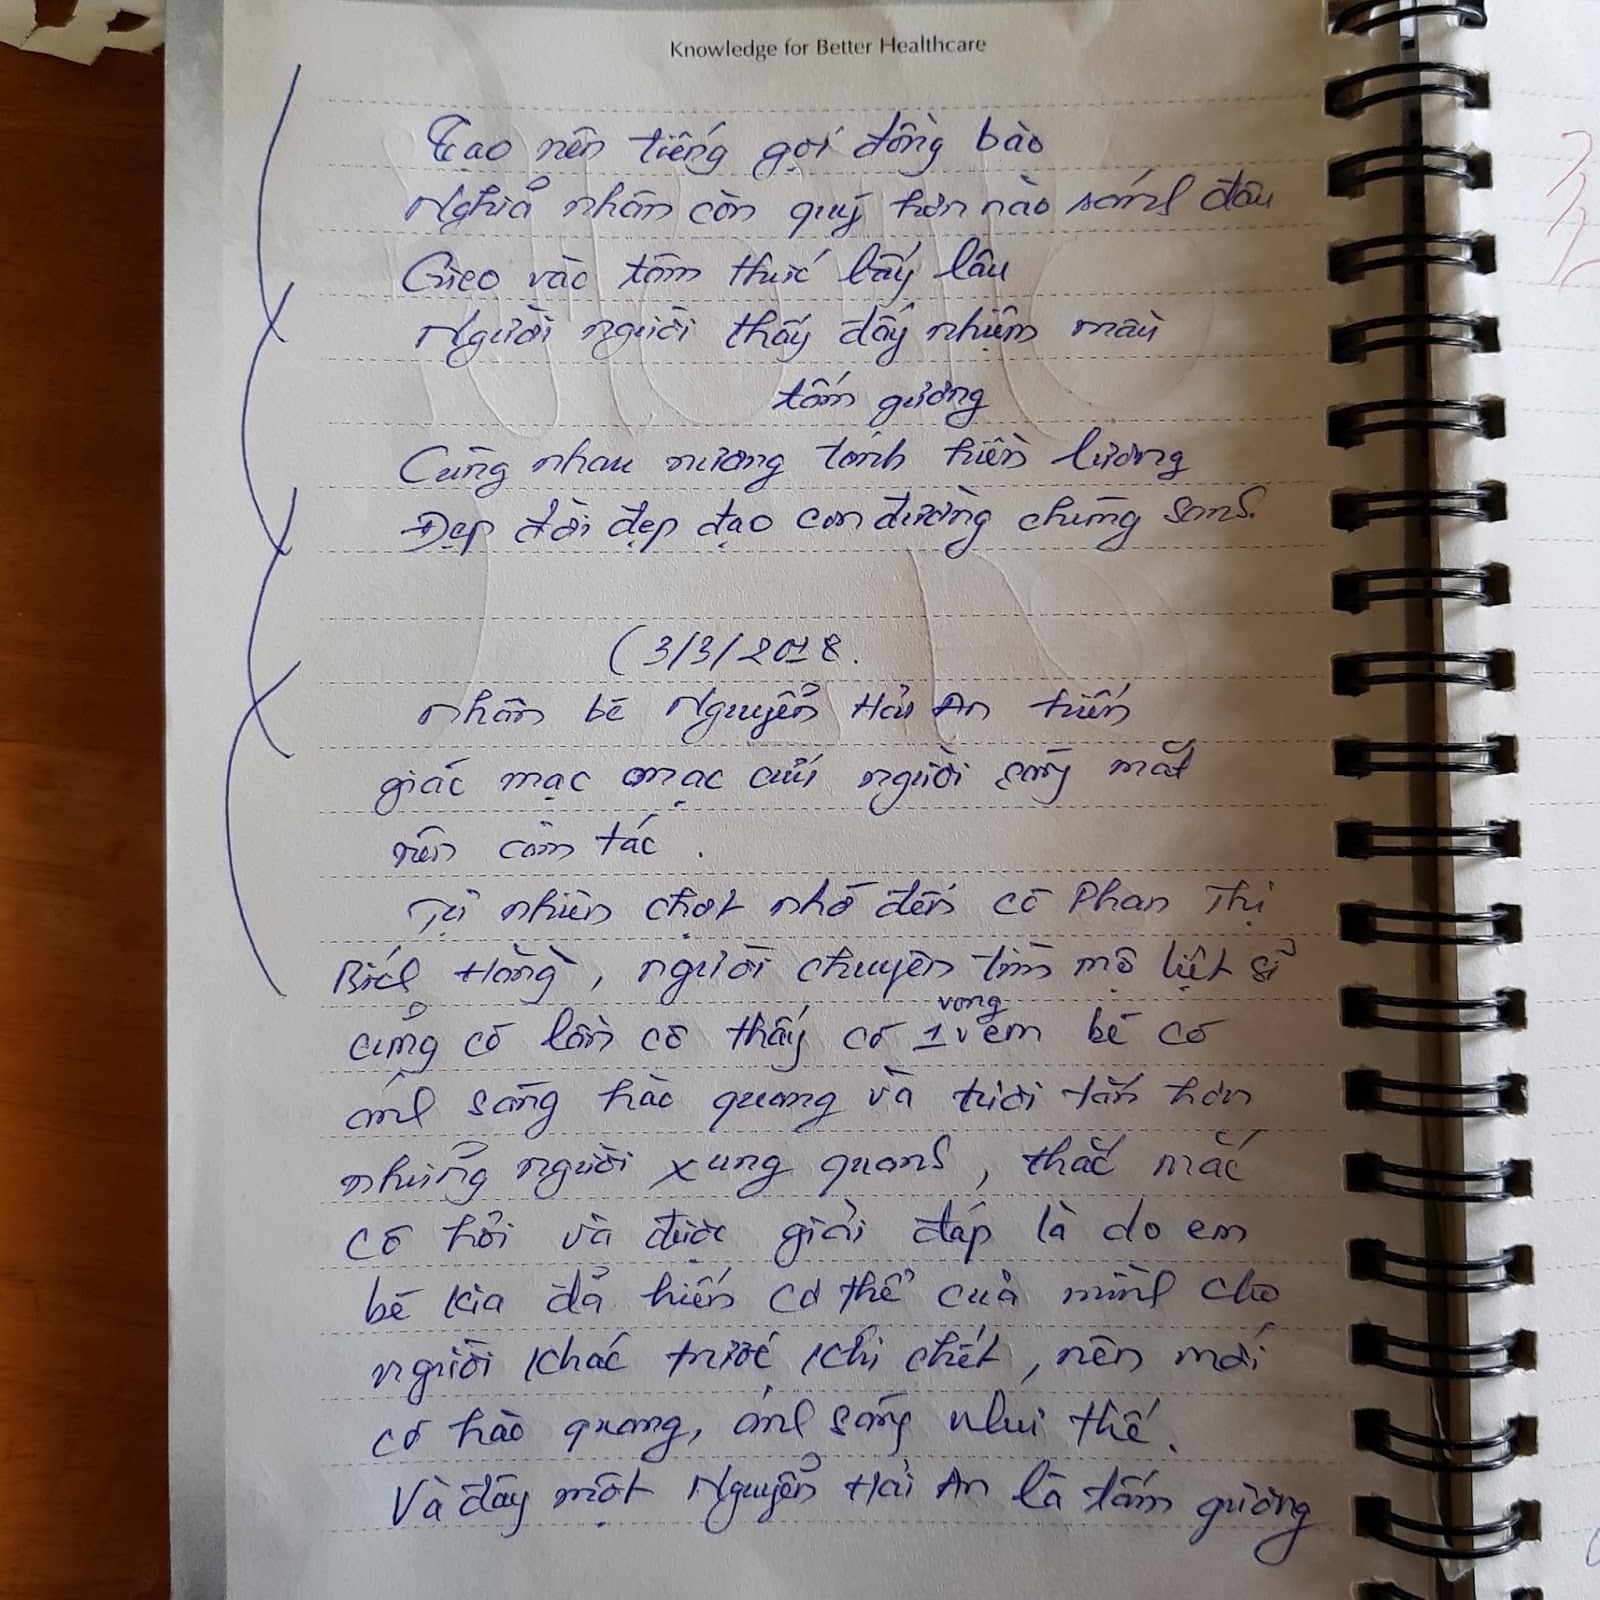 Knowledge for Better Healthcare
Tạo nên tiếng gọi đồng bào
Nghĩa nhân còn quý hơn nào sánh đâu
Gieo vào tâm thức bấy lâu
Người người thấy đấy nhiệm mầu
tấm gương
Cùng nhau nương tánh hiền lương
Đẹp đời đẹp đạo con đường chúng sanh.
(3/3/2018.
nhân bé Nguyễn Hải An hiến
giác mạc cứu người sáng mắt
nên cảm tác.
Tự nhiên chợt nhớ đến cô Phan Thị
Bích Hằng, người chuyên tìm mộ liệt sĩ
cũng có lần cô thấy có 1 vong em bé có
ánh sáng hào quang và tươi tắn hơn
những người xung quanh, thắc mắc
cô hỏi và được giải đáp là do em
bé kia đã hiến cơ thể của mình cho
người khác trước khi chết, nên mới
có hào quang, ánh sáng như thế.
Và đây một Nguyễn Hải An là tấm gương